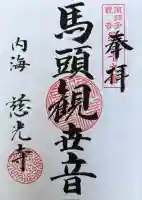 奉拝
馬頭観世音
内海
慈光寺